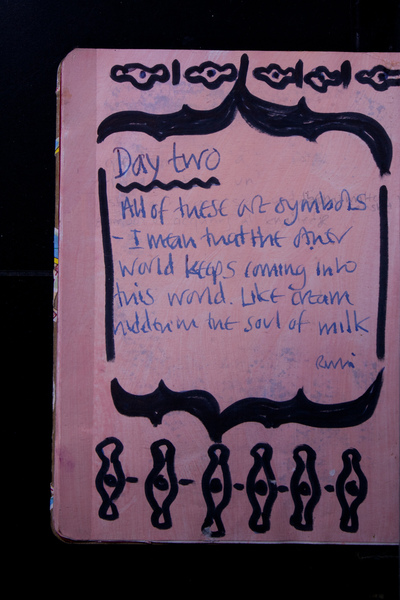 Day two
All of these are symbols
- I mean that the other
world keeps coming into
this world. Like cream
hidden in the soul of milk
Rumi